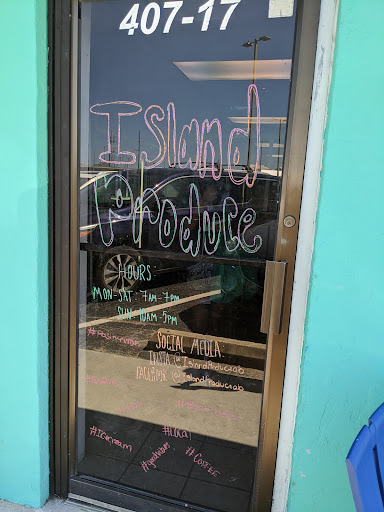 407-17
Island
Produce
HOURS:
MON-SAT: 7AM-7PM
SUN: 10AM-5PM
SOCIAL MEDIA:
INSTA @IslandProduceab
FACEBOOK @IslandProduceab
#Local
#Icecream
#Coffee